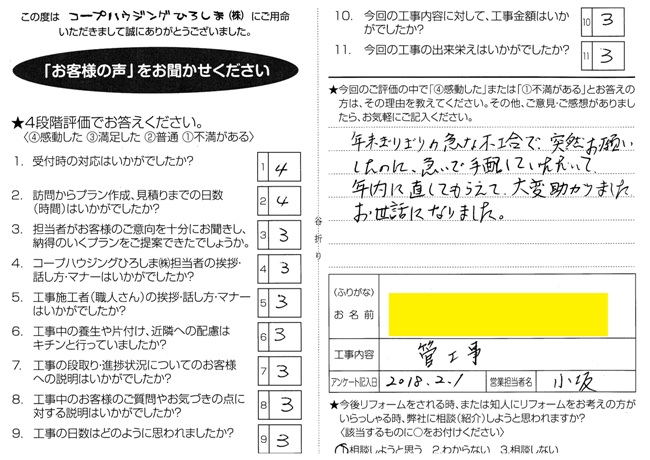 この度は コープハウジングひろしま(株) にご用命
いただきまして誠にありがとうございました。
「お客様の声」をお聞かせください
★4段階評価でお答えください。
〈④感動した ③満足した ②普通 ①不満がある〉
1. 受付時の対応はいかがでしたか?
1 4
2. 訪問からプラン作成、見積りまでの日数
(時間)はいかがでしたか?
2 4
3. 担当者がお客様のご意向を十分にお聞きし、
納得のいくプランをご提案できたでしょうか。
3 3
4. コープハウジングひろしま㈱担当者の挨拶・
話し方・マナーはいかがでしたか?
4 3
5. 工事施工者(職人さん)の挨拶・話し方・マナー
はいかがでしたか?
5 3
6. 工事中の養生や片付け、近隣への配慮は
キチンと行っていましたか?
6 3
7. 工事の段取り・進捗状況についてのお客様
への説明はいかがでしたか?
7 3
8. 工事中のお客様のご質問やお気づきの点に
対する説明はいかがでしたか?
8 3
9. 工事の日数はどのように思われましたか?
9 3
谷折り
10. 今回の工事内容に対して、工事金額はいか
がでしたか?
10 3
11. 今回の工事の出来栄えはいかがでしたか?
11 3
★今回のご評価の中で「④感動した」または「①不満がある」とお答え
の方は、その理由を教えてください。その他、ご意見・ご感想がありまし
たら、お気軽にご記入ください。
年末ぎりぎりの急な不具合で、突然お願い
したのに、急いで手配していただいて
年内に直してもらえて、大変助かりました
お世話になりました。
(ふりがな)
お名前
工事内容 管工事
アンケート記入日 2018.2.1 営業担当者名 小坂
★今後リフォームをされる時、または知人にリフォームをお考えの方が
いらっしゃる時、弊社に相談(紹介)しようと思われますか?
〈該当するものに○をお付けください〉
1.相談しようと思う 2.わからない 3.相談しない